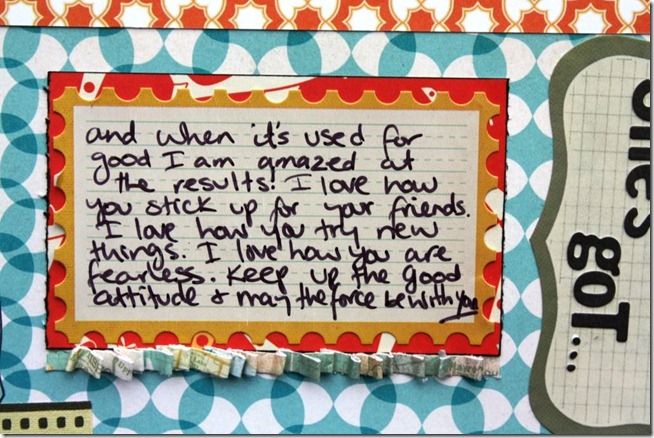 and when it's used for
good I am amazed at
the results! I love how
you stick up for your friends.
I love how you try new
things. I love how you are
fearless. Keep up the good
attitude & may the force be with you
got...